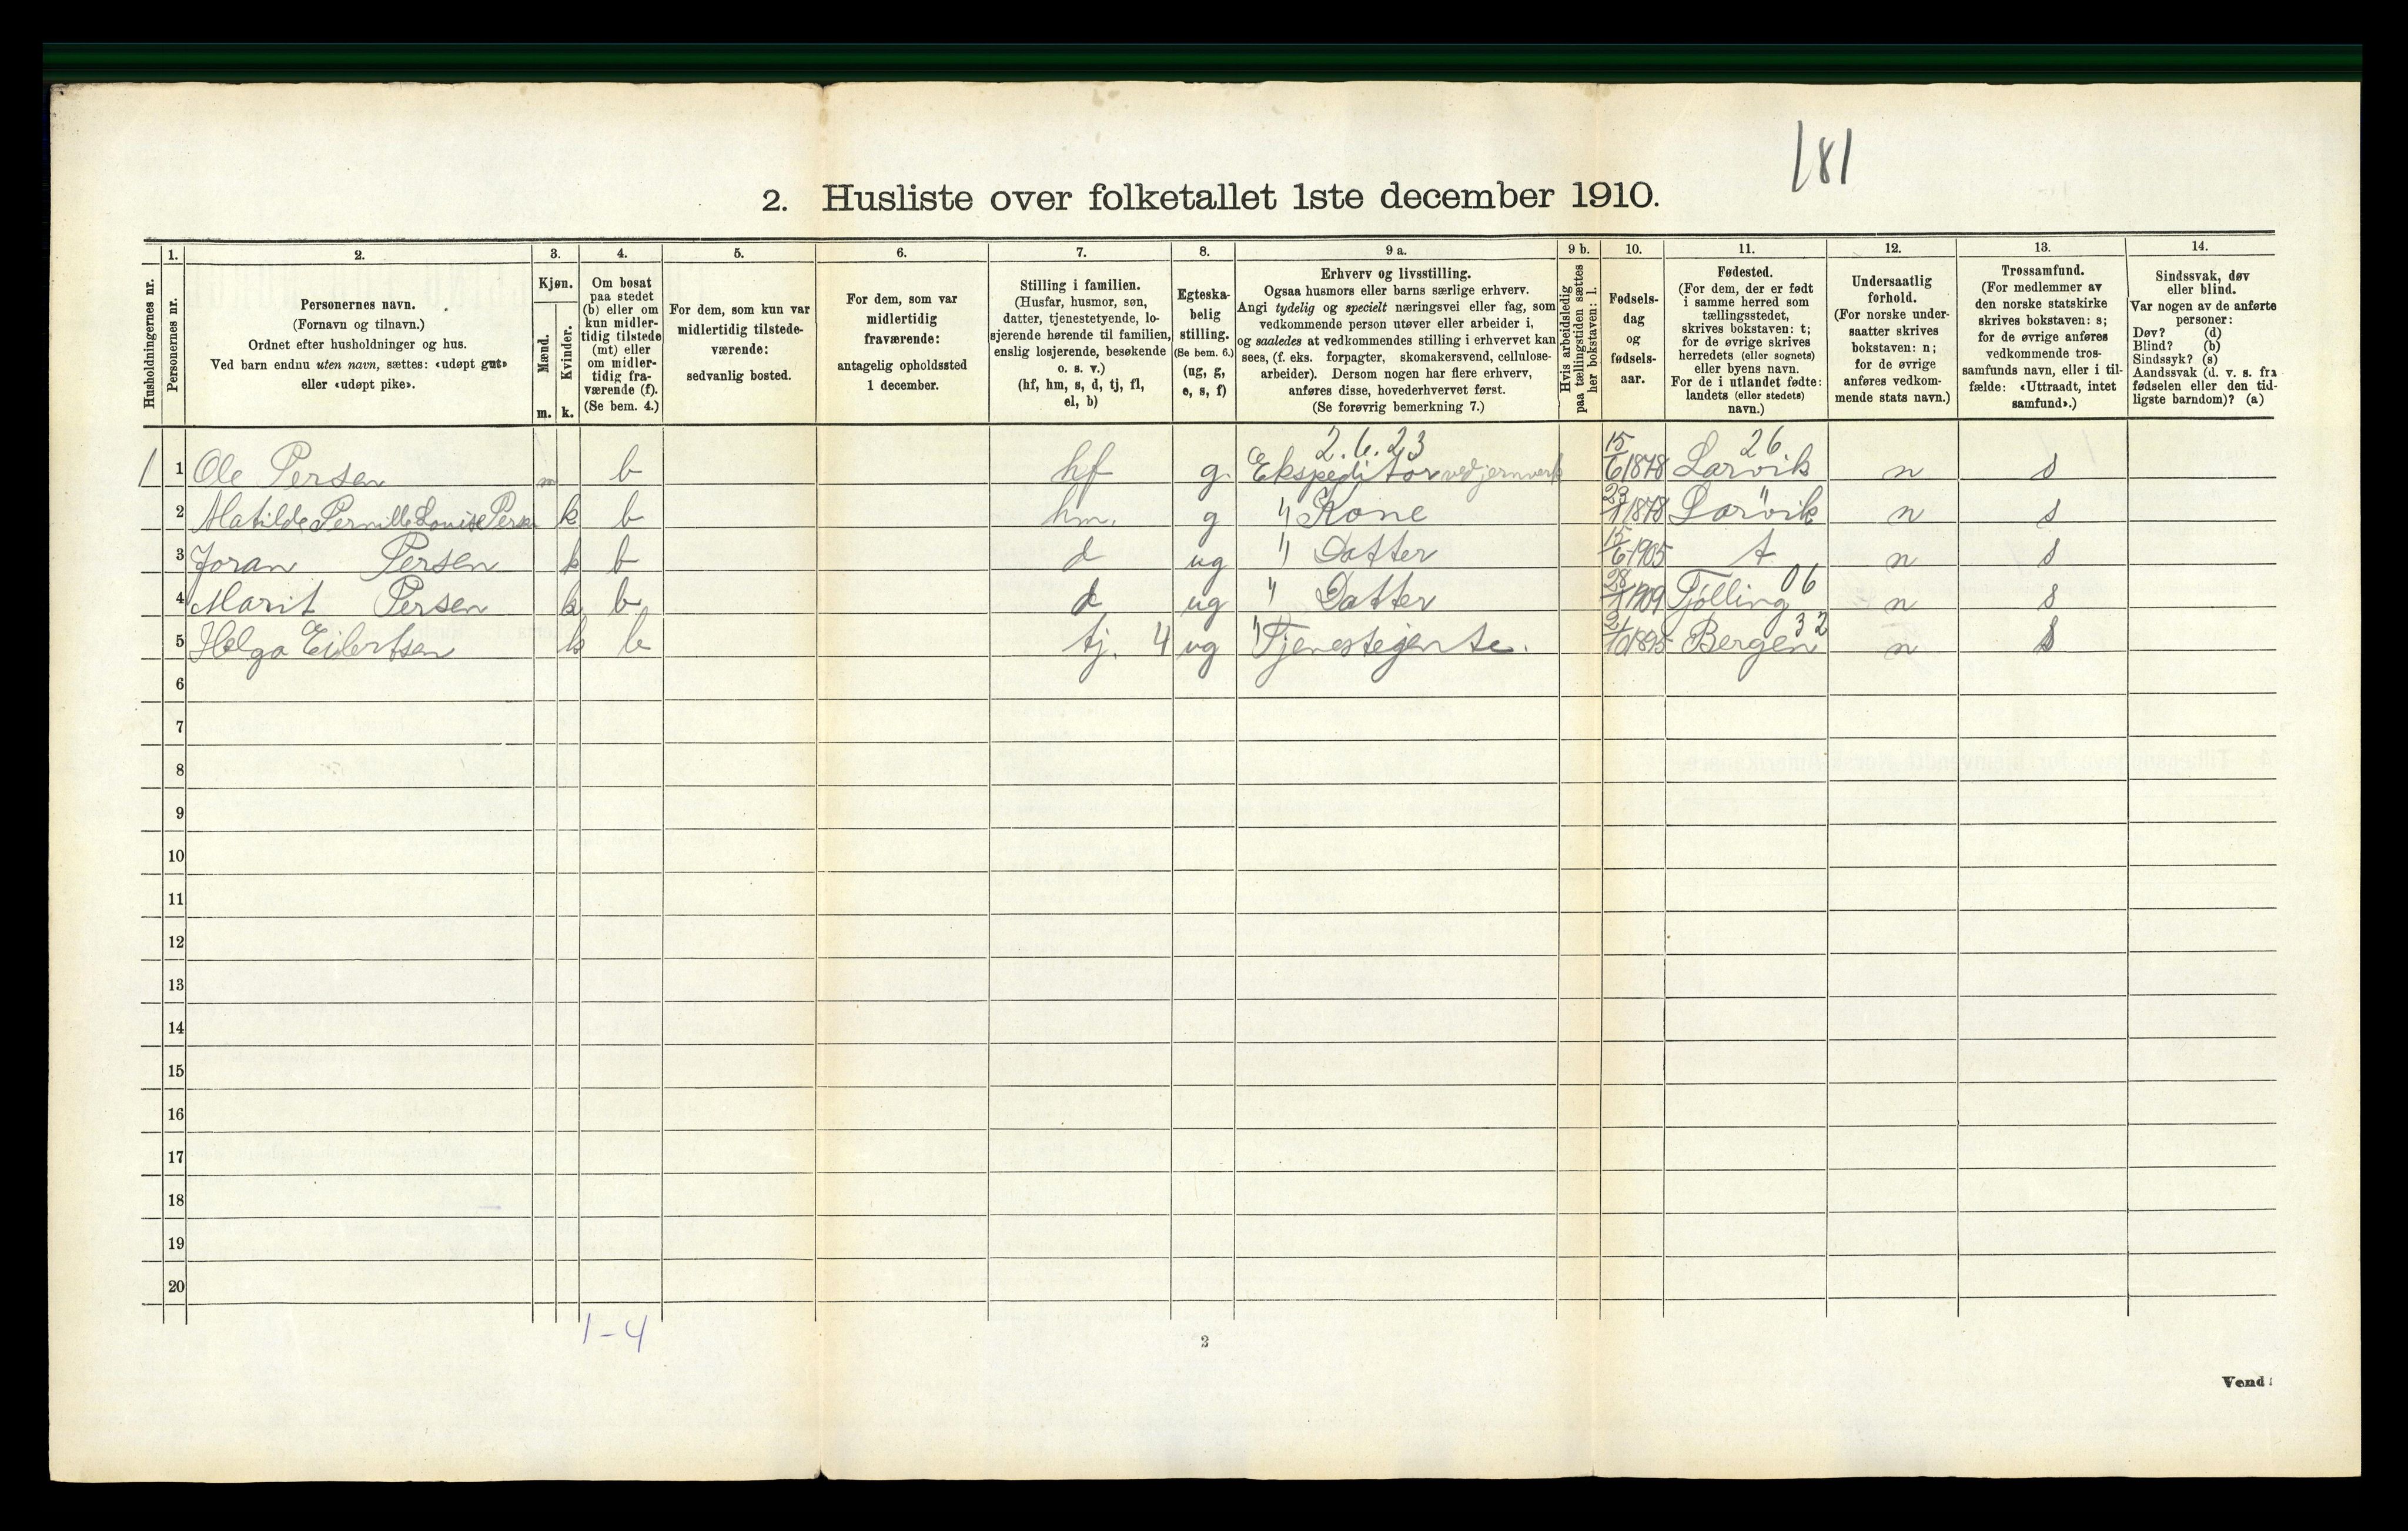 181
2. Husliste over folketallet 1ste december 1910.
Husholdningernes nr.
1.
Personernes nr.
2.
Personernes navn.
(Fornavn og tilnavn.)
Ordnet efter husholdninger og hus.
Ved barn endnu uten navn, sættes: «udøpt gut»
eller «udøpt pike».
3.
Kjøn.
Mænd.
m.
Kvinder.
k.
4.
Om bosat
paa stedet
(b) eller om
kun midler-
tidig tilstede
(mt) eller
om midler-
tidig fra-
værende (f).
(Se bem. 4.)
5.
For dem, som kun var
midlertidig tilstede-
værende:
sedvanlig bosted.
6.
For dem, som var
midlertidig
fraværende:
antagelig opholdssted
1 december.
7.
Stilling i familien.
(Husfar, husmor, søn,
datter, tjenestetyende, lo-
sjerende hørende til familien,
enslig losjerende, besøkende
o. s. v.)
(hf, hm, s, d, tj, fl,
el, b)
8.
Egteska-
belig
stilling.
(Se bem. 6.)
(ug, g,
e, s, f)
9 a.
Erhverv og livsstilling.
Ogsaa husmors eller barns særlige erhverv.
Angi tydelig og specielt næringsvei eller fag, som
vedkommende person utøver eller arbeider i,
og saaledes at vedkommendes stilling i erhvervet kan
sees, (f. eks. forpagter, skomakersvend, cellulose-
arbeider). Dersom nogen har flere erhverv,
anføres disse, hovederhvervet først.
(Se forøvrig bemerkning 7.)
9 b.
Hvis arbeidsledig
paa tællingstiden sættes
her bokstaven: l.
10.
Fødsels-
dag
og
fødsels-
aar.
11.
Fødested.
(For dem, der er født
i samme herred som
tællingsstedet,
skrives bokstaven: t;
for de øvrige skrives
herredets (eller sognets)
eller byens navn.
For de i utlandet fødte:
landets (eller stedets)
navn.)
12.
Undersaatlig
forhold.
(For norske under-
saatter skrives
bokstaven: n;
for de øvrige
anføres vedkom-
mende stats navn.)
13.
Trossamfund.
(For medlemmer av
den norske statskirke
skrives bokstaven: s;
for de øvrige anføres
vedkommende tros-
samfunds navn, eller i til-
fælde: «Uttraadt, intet
samfund».)
14.
Sindssvak, døv
eller blind.
Var nogen av de anførte
personer:
Døv? (d)
Blind? (b)
Sindssyk? (s)
Aandssvak (d. v. s. fra
fødselen eller den tid-
ligste barndom)? (a)
2.6.23 26
1 1 Ole Persen m b hf g. Ekspeditør ved jernverk 15/6 1878 Larvik n s
2 Matilde Pernille Louise Persen k b hm. g " Kone 1878 Larvik " n s
3 Joran Persen k b d ug " Datter 15/6 1905 t n s
4 Marit Persen k b d ug " Datter 1909 Tjølling 06 n s
5 Helga Eilertsen k b tj. 4 ug " Tjenestejente. 1895 Bergen 32 n s
6
7
8
9
10
11
12
13
14
15
16
17
18
19
20
1-4
2
Vend!